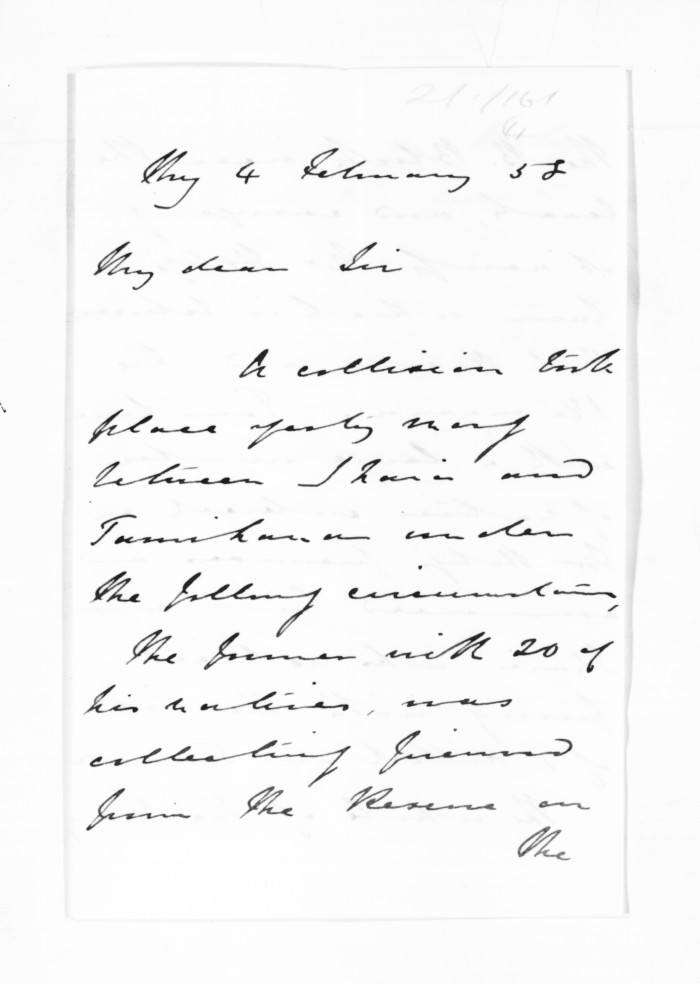 21-/161
4
Thy 4 February 58
My dear Sir
A collision took
place yesty morng
between Ihaia and
Tamihana under
the following circumstances,
The former with 20 of
his natives, was
collecting firewood
from the Reserve on
the